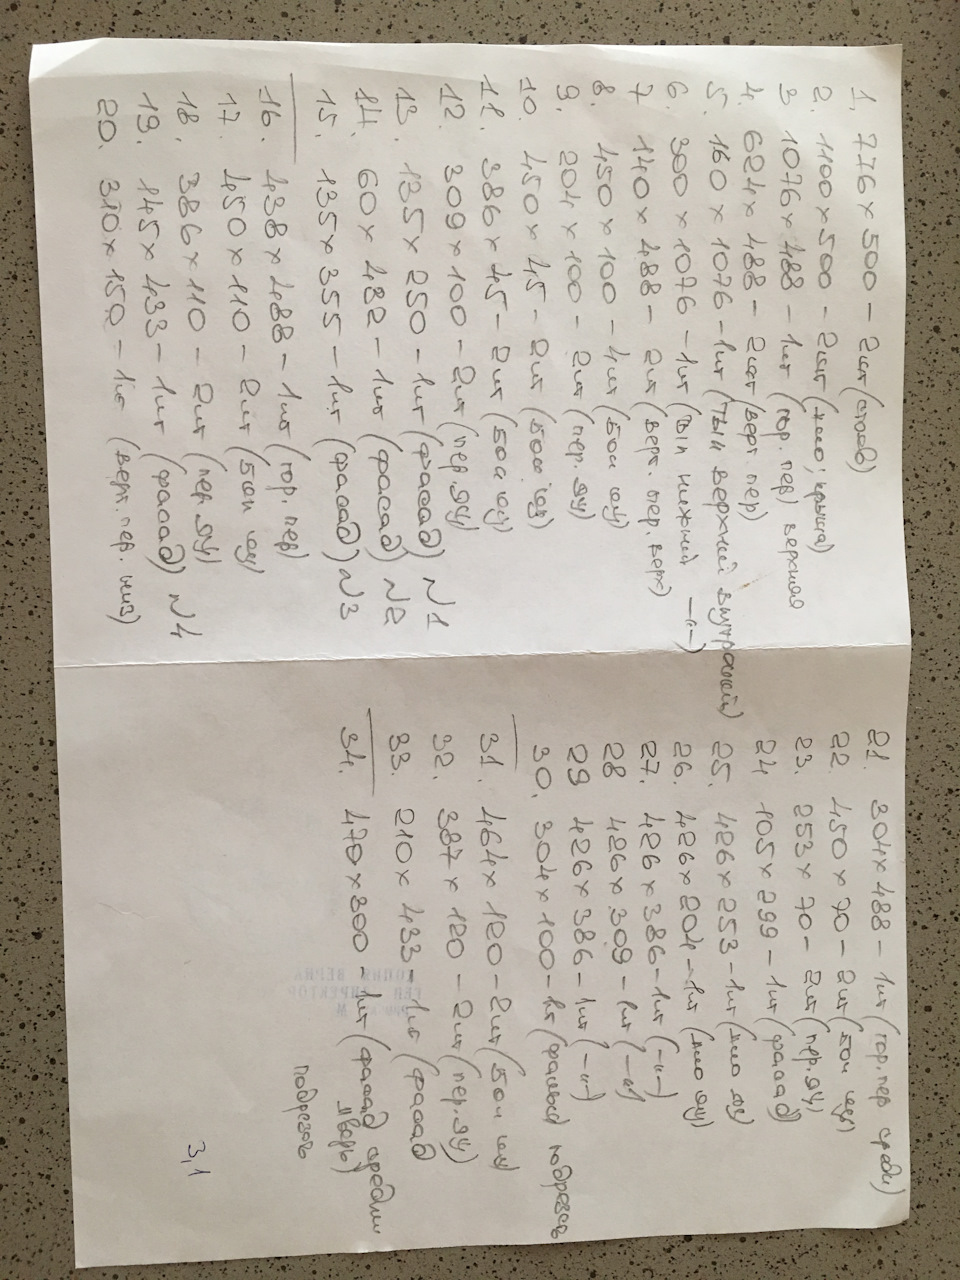 1. 776 х 500 – 2шт (стоев)
2. 1100 х 500 – 2шт (дно; крыша)
3 1076 х 488 – 1шт (гор. пер) верхняя
4. 624 х 488 – 2шт (верт. пер)
5. 160 х 1076 – 1шт (тыл верхний внутренний)
6. 300 х 1076 – 1шт (тыл нижний –"–)
7 140 х 488 – 2шт (верт. пер. верх)
8. 450 х 100 – 4шт (бок ящ)
9. 204 х 100 – 2шт (пер. ящ)
10. 450 х 45 – 2шт (бок. ящ)
11. 386 х 45 – 2шт (бок ящ)
12. 309 х 100 – 2шт (пер. ящ)
13. 135 х 250 – 1шт (фасад) N1
14. 60 х 482 – 1шт (фасад) N2
15. 135 х 355 – 1шт (фасад) N3
16. 438 х 488 – 1шт (гор. пер)
17. 450 х 110 – 2шт (бок ящ)
18. 386 х 110 – 2шт (пер. ящ)
19. 145 х 433 – 1шт (фасад) N4
20. 310 х 150 – 1шт (верт. пер. низ)
21. 304 х 488 – 1шт (гор. пер средн)
22. 450 х 70 – 2шт (бок ящ)
23. 253 х 70 – 2шт (пер. ящ)
24 105 х 299 – 1шт (фасад)
25. 426 х 253 – 1шт (дно ящ)
26. 426 х 204 – 1шт (дно ящ)
27. 426 х 386 – 1шт (–"–)
28 426 х 309 – 1шт (–"–)
29 426 х 386 – 1шт (–"–)
30. 304 х 100 – 1шт (фальш) подрезов
31. 464 х 120 – 2шт (бок ящ)
32. 387 х 120 – 2шт (пер. ящ)
33. 210 х 433 – 1шт (фасад
34. 470 х 300 – 1шт (фасад средн дверь)
подрезов
3,1